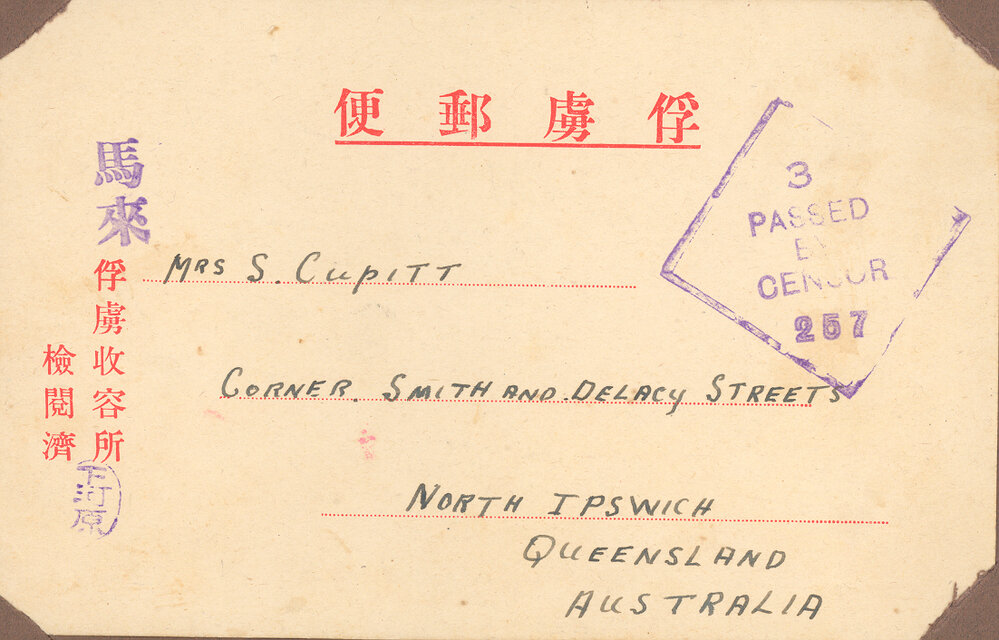 俘虜郵便
馬來
俘虜收容所
檢閱濟
下河原
3
PASSED
BY
CENSOR
257
MRS S. CUPITT
CORNER. SMITH AND DELACY STREETS
NORTH IPSWICH
QUEENSLAND
AUSTRALIA